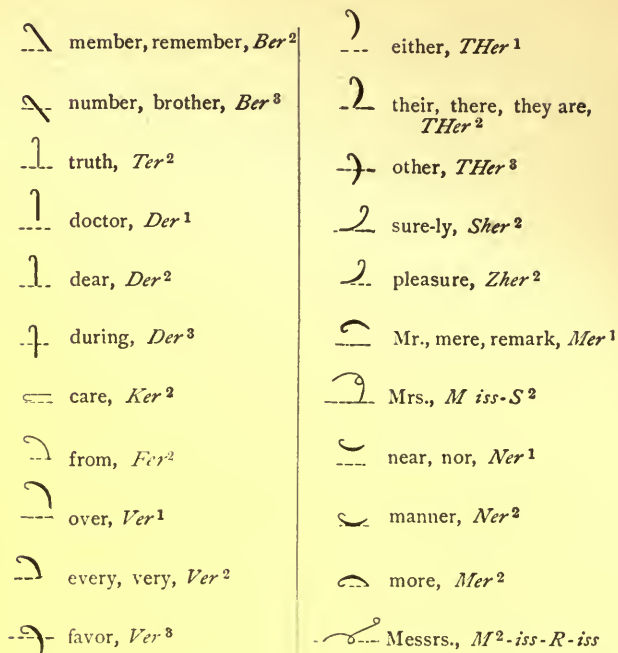 member, remember, Ber²
number, brother, Ber³
truth, Ter²
doctor, Der¹
dear, Der²
during, Der³
care, Ker²
from, Fer²
over, Ver¹
every, very, Ver²
favor, Ver³
either, THer¹
their, there, they are,
THer²
other, THer³
sure-ly, Sher²
pleasure, Zher²
Mr., mere, remark, Mer¹
Mrs., M iss-S²
near, nor, Ner¹
manner, Ner²
more, Mer²
Messrs., M²-iss-R-iss